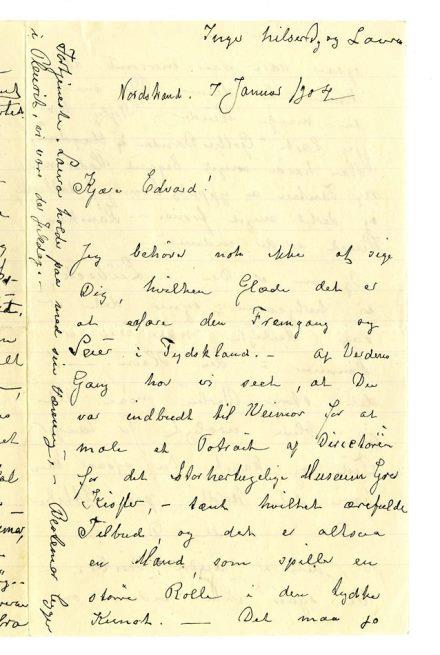 Inger hilser Dig og Laura
Nordstrand. 7 Januar 1904
Kjære Edvard!
Jeg behøver nok ikke at sige
Dig, hvilken Glæde det er
at erfare den Fremgang og
Seier i Tydskland. – Af Verdens
Gang har vi seet, at Du
var indbudt til Weimar for at
male et Potræt af Directören
for det Storhertugelige Museum Grev
Kessler, – tænk hvilket ærefulde
Tilbud, og det er altsaa
en Mand, som spiller en
større Rolle i den tydske
Kunst. — Det maa jo
Laura holder paa med sin
i, vi var der Juledag. –